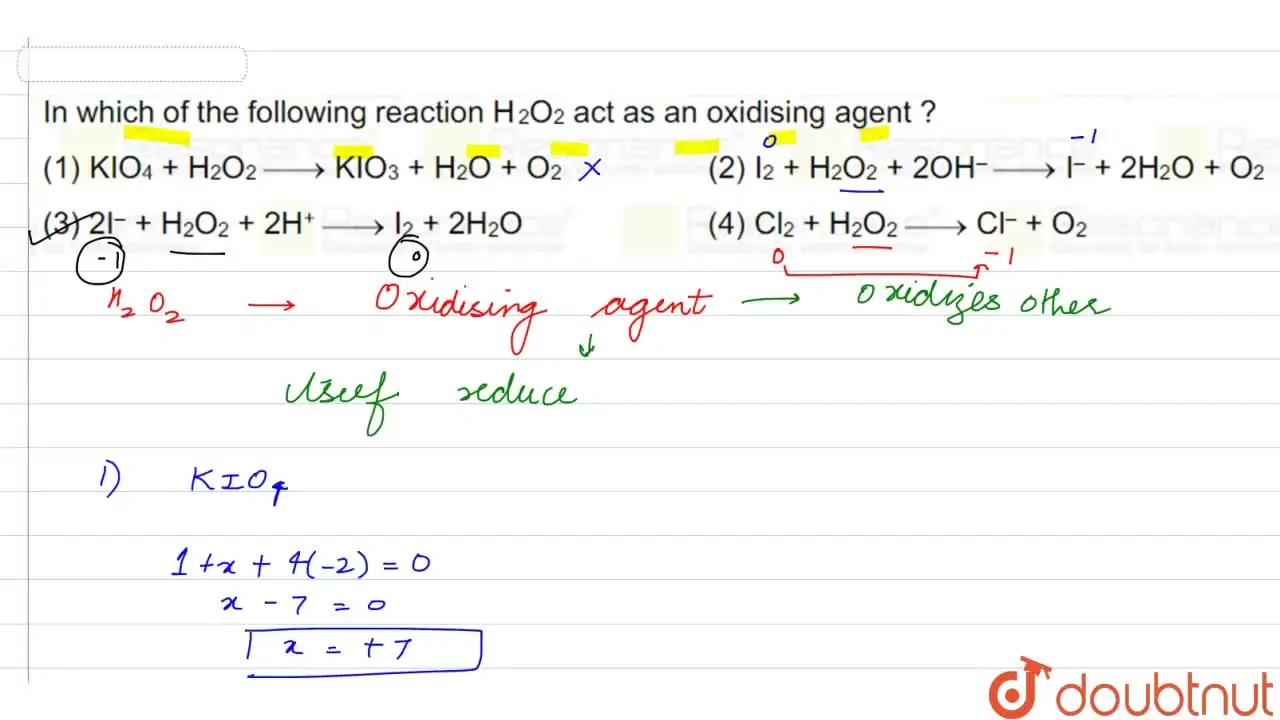 In which of the following reaction H2O2 act as an oxidising agent ?
0
-1
(1) KIO4 + H2O2 ⟶ KIO3 + H2O + O2 ×
(2) I2 + H2O2 + 2OH– ⟶ I– + 2H2O + O2
(3) 2I– + H2O2 + 2H+ ⟶ I2 + 2H2O
(4) Cl2 + H2O2 ⟶ Cl– + O2
-1
0
0
-1
H2O2 → Oxidising agent → oxidizes other
↓
itself reduce
1) KIO4
1 + x + 4(-2) = 0
x - 7 = 0
x = +7
doubtnut